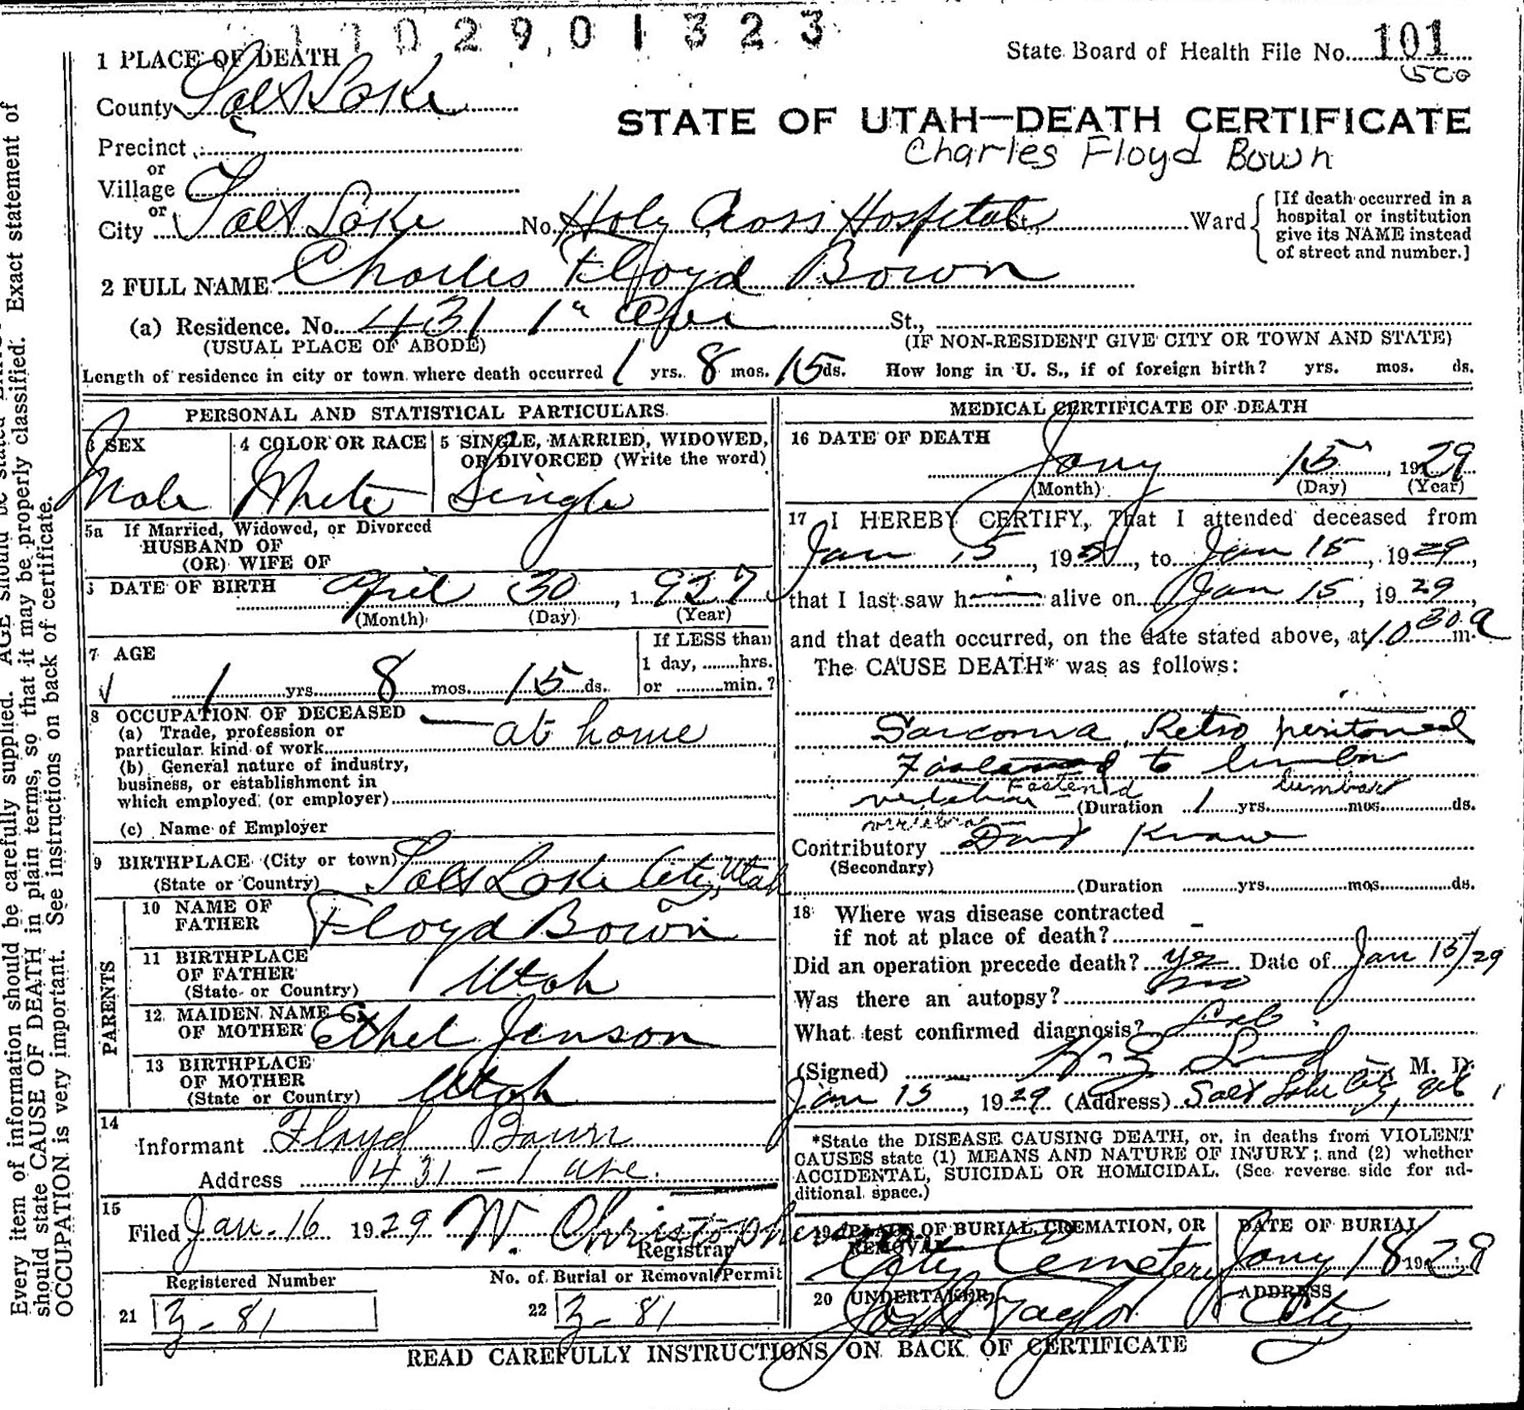 1 1 0 2 9 0 1 3 2 3
State Board of Health File No. 101
500
1 PLACE OF DEATH
County Salt Lake
STATE OF UTAH—DEATH CERTIFICATE
Charles Floyd Bown
Precinct
or
Village
or
City Salt Lake No. Holy Cross Hospital St., Ward
[If death occurred in a
hospital or institution
give its NAME instead
of street and number.]
2 FULL NAME Charles Floyd Bown
(a) Residence. No. 431 1st Ave St.,
(USUAL PLACE OF ABODE) (IF NON-RESIDENT GIVE CITY OR TOWN AND STATE)
Length of residence in city or town where death occurred 1 yrs. 8 mos. 15 ds. How long in U. S., if of foreign birth? yrs. mos. ds.
PERSONAL AND STATISTICAL PARTICULARS
3 SEX
Male
4 COLOR OR RACE
White
5 SINGLE, MARRIED, WIDOWED,
OR DIVORCED (Write the word)
Single
5a If Married, Widowed, or Divorced
HUSBAND OF
(OR) WIFE OF
DATE OF BIRTH April 30, 1927
(Month) (Day) (Year)
7 AGE
1 yrs. 8 mos. 15 ds.
If LESS than
1 day, ........hrs.
or ..........min.?
8 OCCUPATION OF DECEASED
(a) Trade, profession or
particular kind of work at home
(b) General nature of industry,
business, or establishment in
which employed (or employer)
(c) Name of Employer
9 BIRTHPLACE (City or town)
(State or Country) Salt Lake City, Utah
PARENTS
10 NAME OF
FATHER Floyd Bown
11 BIRTHPLACE
OF FATHER
(State or Country) Utah
12 MAIDEN NAME
OF MOTHER Ethel Jenson
13 BIRTHPLACE
OF MOTHER
(State or Country) Utah
14
Informant Floyd Bown
Address 431 - 1 ave.
15
Filed Jan. 16 1929 W. Christopherson
Registrar
Registered Number No. of Burial or Removal Permit
21 Z-81 22 Z-81
MEDICAL CERTIFICATE OF DEATH
16 DATE OF DEATH
Jany 15, 1929
(Month) (Day) (Year)
17 I HEREBY CERTIFY, That I attended deceased from
Jan 15, 19 , to Jan 15, 1929,
that I last saw h alive on Jan 15, 1929,
and that death occurred, on the date stated above, at 10 30 a m.
The CAUSE DEATH* was as follows:
Sarcoma, Retro peritoneal
Fastened to lumbar
Fastened lumbar
vertebrae (Duration 1 yrs. mos. ds.
vertebrae
Contributory Dont Know
(Secondary)
(Duration yrs. mos. ds.
18 Where was disease contracted
if not at place of death? -
Did an operation precede death? yes Date of Jan 15/29
Was there an autopsy? no
What test confirmed diagnosis? Lab
(Signed) M. D.
Jan 15, 1929 (Address) Salt Lake City,
*State the DISEASE CAUSING DEATH, or, in deaths from VIOLENT
CAUSES state (1) MEANS AND NATURE OF INJURY; and (2) whether
ACCIDENTAL, SUICIDAL OR HOMICIDAL. (See reverse side for ad-
ditional space.)
19 PLACE OF BURIAL, CREMATION, OR
REMOVAL
City Cemetery
DATE OF BURIAL
Jany 18 1929
20 UNDERTAKER
Taylor
ADDRESS
City
READ CAREFULLY INSTRUCTIONS ON BACK OF CERTIFICATE
Every item of information should be carefully supplied. AGE should be stated Exact statement of
should state CAUSE OF DEATH in plain terms, so that it may be properly classified.
OCCUPATION is very important. See instructions on back of certificate.